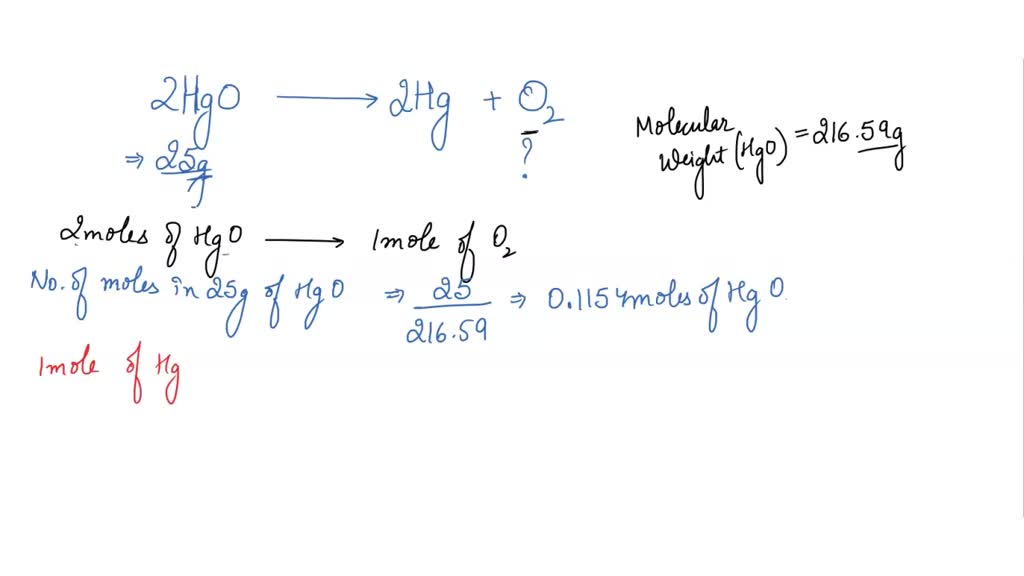 2HgO ⟶ 2Hg + O₂
⇒ 25g ?
Molecular
Weight (HgO) = 216.59g
2moles of HgO ⟶ 1mole of O₂
No. of moles in 25g of HgO ⇒ 25/216.59 ⇒ 0.1154moles of HgO
1mole of Hg